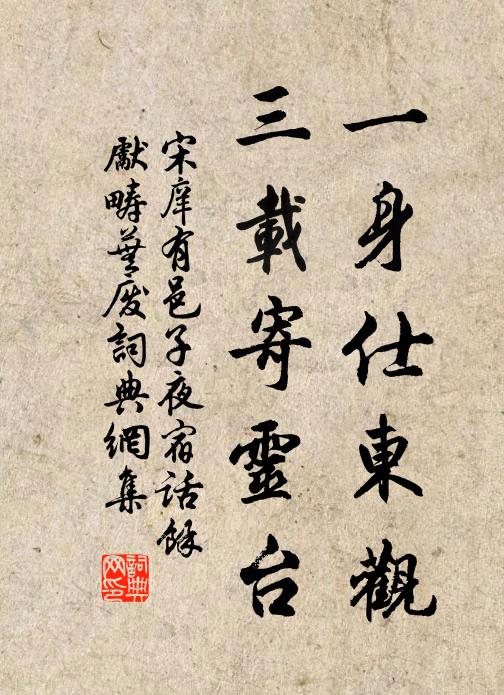 一身仕東觀
三載寄靈台
宋庠有邑子夜宿話餘
獻畴蕪廢詞典網集
詞典网印